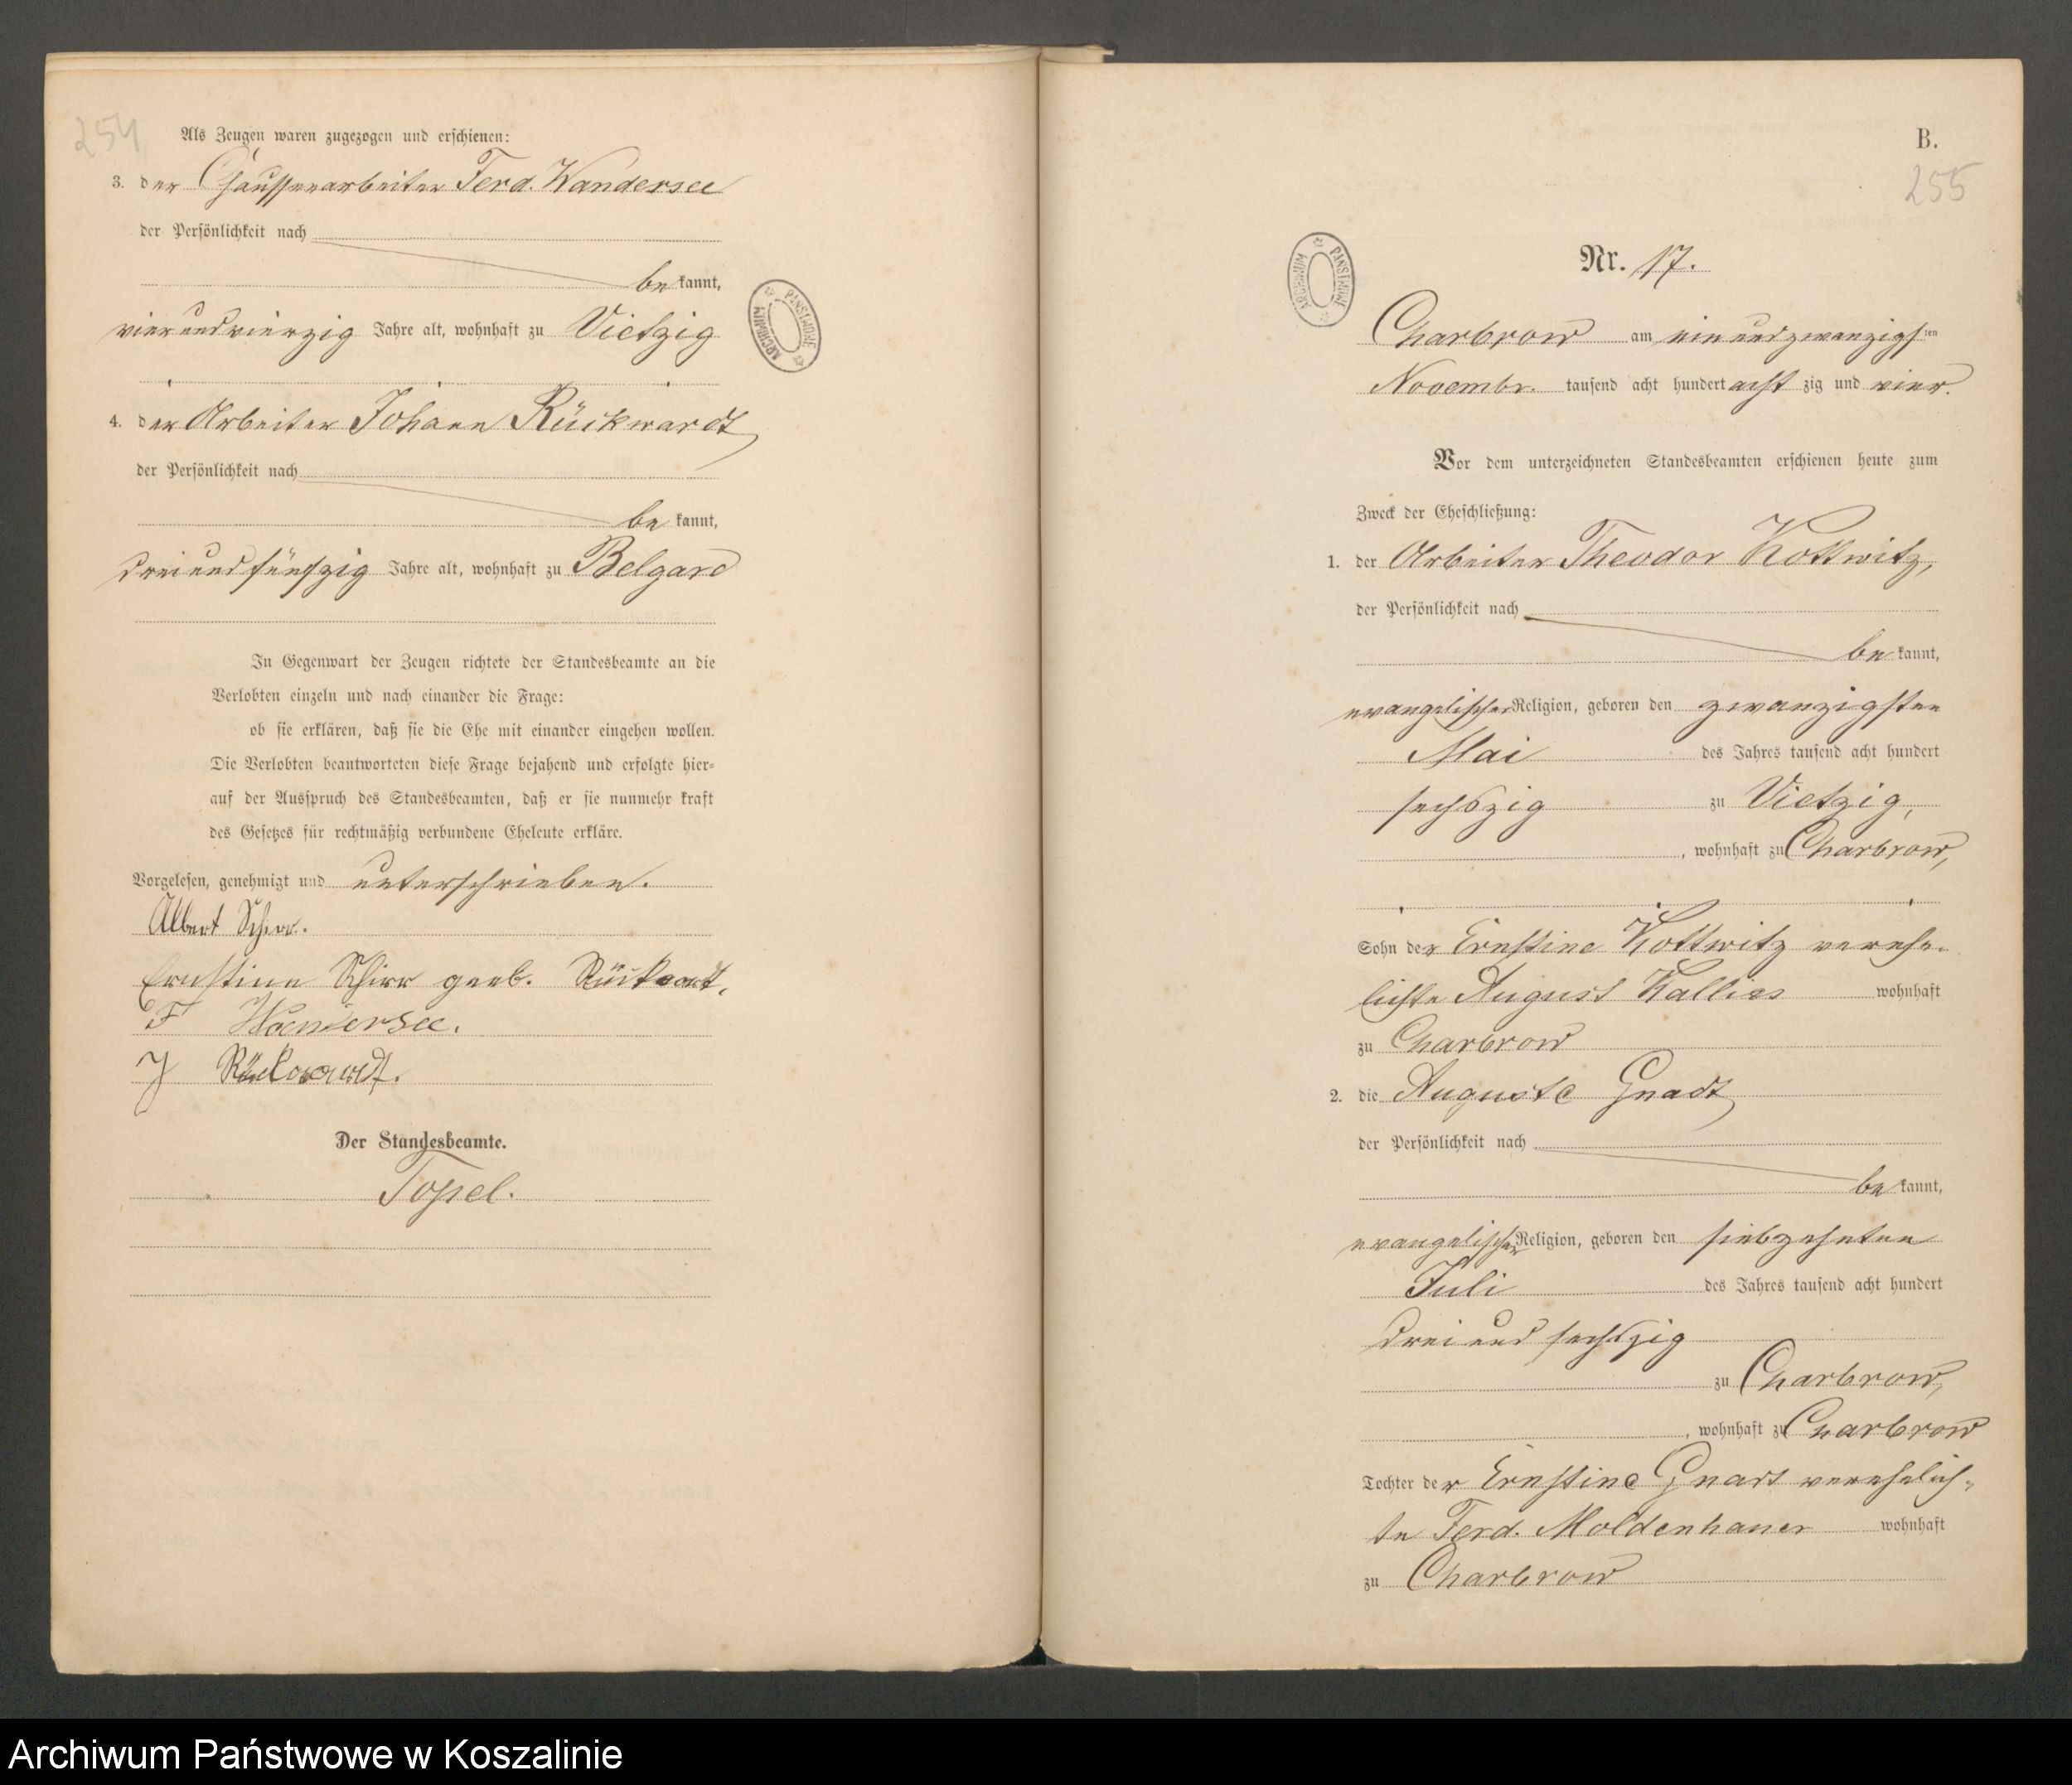 254
Als Zeugen waren zugezogen und erschienen:
3. der Chausseearbeiter Ferd. Wandersee
der Persönlichkeit nach
be kannt,
vierundvierzig Jahre alt, wohnhaft zu Vietzig
4. der Arbeiter Johann Rückwardt
der Persönlichkeit nach
be kannt,
dreiundfünfzig Jahre alt, wohnhaft zu Belgard
In Gegenwart der Zeugen richtete der Standesbeamte an die
Verlobten einzeln und nach einander die Frage:
ob sie erklären, daß sie die Ehe mit einander eingehen wollen.
Die Verlobten beantworteten diese Frage bejahend und erfolgte hier-
auf der Ausspruch des Standesbeamten, daß er sie nunmehr kraft
des Gesetzes für rechtmäßig verbundene Eheleute erkläre.
Vorgelesen, genehmigt und unterschrieben.
Albert Schirr.
Ernstine Schirr geb. Rückwart,
F Wandersee.
J Rückwardt.
Der Standesbeamte.
Topel.
ARCHIWUM PAŃSTWOWE
B.
255
ARCHIWUM PAŃSTWOWE
Nr. 17.
Charbrow am einundzwanzigsten
Novembr. tausend acht hundert acht zig und vier.
Vor dem unterzeichneten Standesbeamten erschienen heute zum
Zweck der Eheschließung:
1. der Arbeiter Theodor Kottwitz,
der Persönlichkeit nach
be kannt,
evangelischer Religion, geboren den zwanzigsten
Mai des Jahres tausend acht hundert
sechszig zu Vietzig,
, wohnhaft zu Charbrow,
Sohn der Ernstine Kottwitz verehe-
lichte August Kallies wohnhaft
zu Charbrow
2. die Auguste Gnadt
der Persönlichkeit nach
be kannt,
evangelischer Religion, geboren den siebzehnten
Juli des Jahres tausend acht hundert
drei und sechszig
zu Charbrow,
, wohnhaft zu Charbrow
Tochter der Ernstine Gnadt verehelich-
te Ferd. Moldenhauer wohnhaft
zu Charbrow
Archiwum Państwowe w Koszalinie